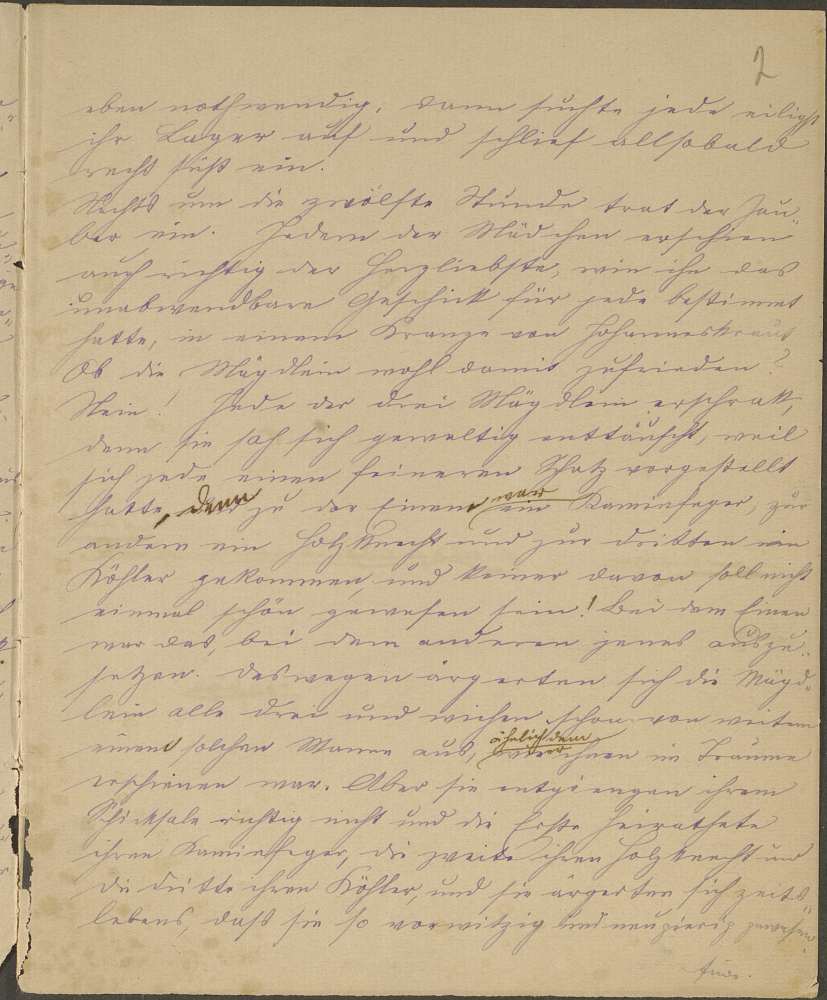 2
eben nothwendig, dann suchte jede eiligst
ihr Lager auf und schlief allsobald
recht süß ein.
Nachts um die zwölfte Stunde trat der Zau-
ber ein. Jedem der Mädchen erschien
auch richtig der Herzliebste, wie ihn das
unabwendbare Geschick für jede bestimmt
hatte, in einem Kranze von Johanneskraut
Ob die Mägdlein wohl damit zufrieden?
Nein! Jede der drei Mägdlein erschrak,
denn sie sah sich gewaltig enttäuscht, weil
sich jede einen feineren Schatz vorgestellt
hatte, denn zu der Einen war ein Kaminfeger, zur
andern ein Holzknecht und zur dritten ein
Köhler gekommen, und keiner davon soll nicht
einmal schön gewesen sein! Bei dem Einen
war das, bei dem anderen jenes auszu-
setzen. Deswegen ärgerten sich die Mägd-
lein alle drei und wichen schon von weitem
einem solchen Manne aus, ähnlich dem der ihnen im Traume
erschienen war. Aber sie entgiengen ihrem
Schicksale richtig nicht und die Erste heirathete
ihren Kaminfeger, die zweite ihren Holzknecht und
die dritte ihren Köhler, und sie ärgerten sich zeit-
lebens, daß sie so vorwitzig und neugierig gewesen